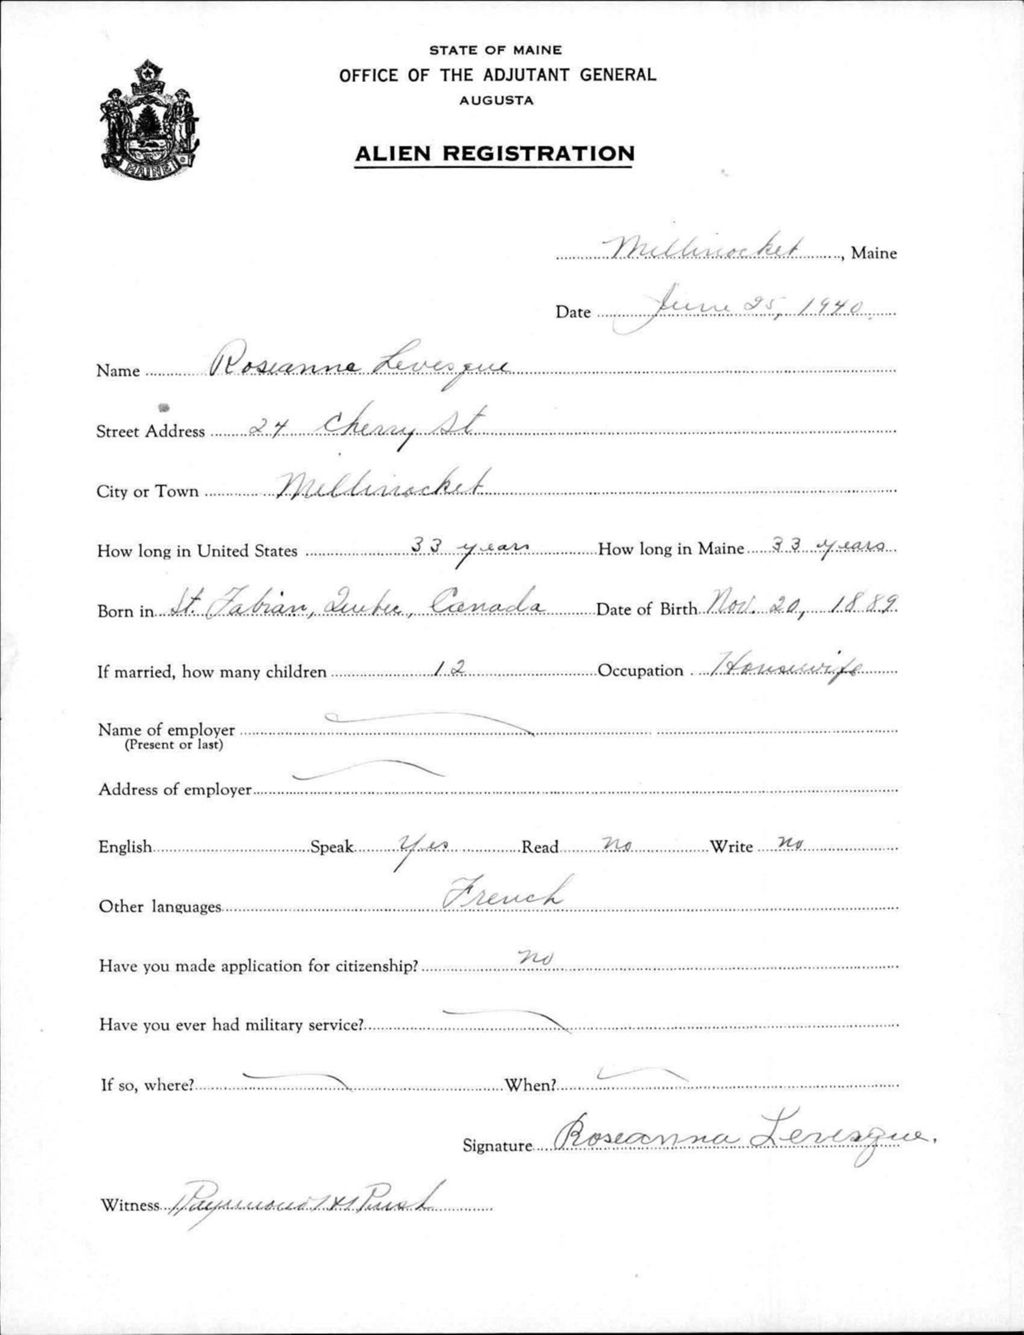 STATE OF MAINE
OFFICE OF THE ADJUTANT GENERAL
AUGUSTA
ALIEN REGISTRATION
MAINE
Millinocket, Maine
Date June 25, 1940.
Name Roseanna Levesque
Street Address 24 Cherry St
City or Town Millinocket
How long in United States 33 years How long in Maine 33 years
Born in St. Fabian, Quebec, Canada Date of Birth Nov. 20, 1889
If married, how many children 12 Occupation Housewife
Name of employer
(Present or last)
Address of employer
English Speak Yes Read No Write No
Other languages French
Have you made application for citizenship? No
Have you ever had military service?
If so, where? When?
Signature Roseanna Levesque.
Witness Raymond H Rush